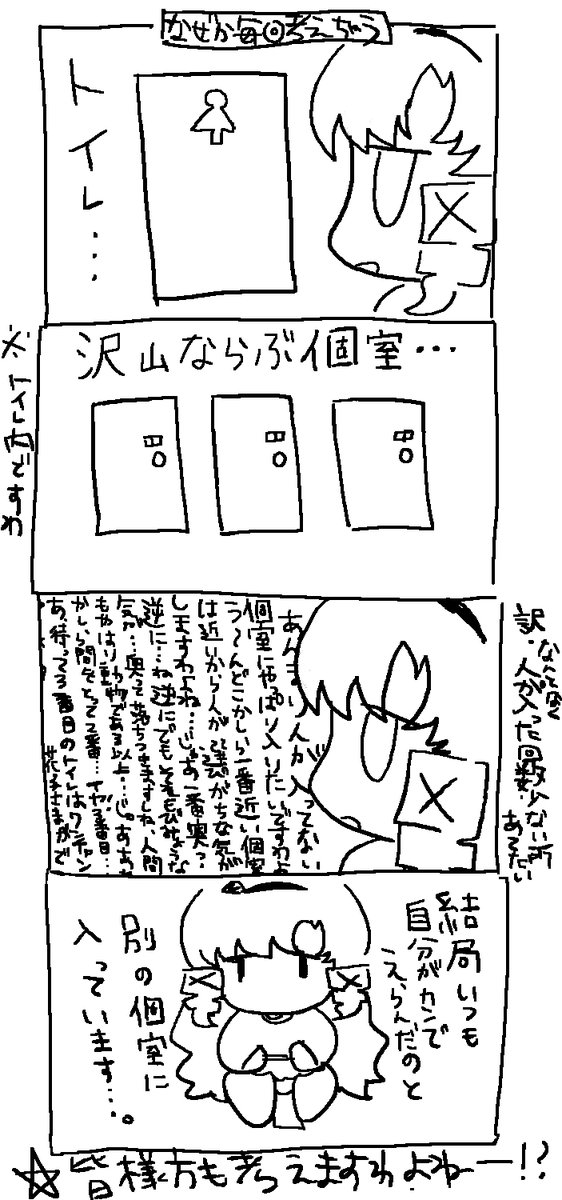 なぜか毎回考えちゃう
トイレ・・・
沢山ならぶ個室・・・
※トイレ内ですわ
あんまり人が入ってない
個室にやっぱり入りたいですわよ
う～んどこかしら一番近い個室
は近いから人が選びがちな気が
しますわよね・・・じゃあ一番奥っ・・
逆に・・・ね逆にでもそれもみような
気が・・・奥って落ちつきますしね、人間
もやはり動物である以上・・・じゃああ
かしら間をとって2番・・・イヤ3番目・・・
あ、待って3番目のトイレはワンチャン
花子さまがで
訳・なんとなく
人が入った回数少ない所
あてたい
結局いつも
自分がカンで
えらんだのと
別の個室に
入っています・・・。
☆皆様方も考えますわよねー!?